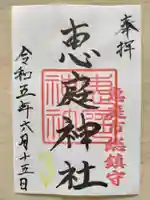 奉拝
恵庭神社
恵庭市総鎮守
令和五年六月十五日